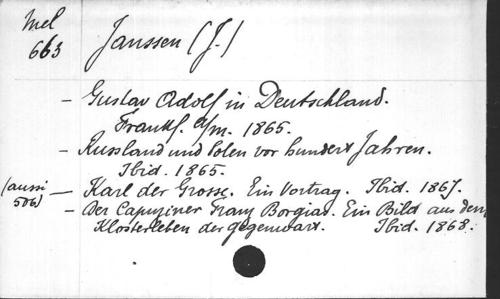 Mel
663
Janssen (J.)
– Gustav Adolf in Deutschland.
Frankf. a/m. 1865.
– Russland und Polen vor hundert Jahren.
Ibid. 1865.
(aussi
506)
– Karl der Grosse. Ein Vortrag. Ibid. 1867.
– Der Capuziner Franz Borgias. Ein Bild aus dem
Klosterleben der Gegenwart. Ibid. 1868.